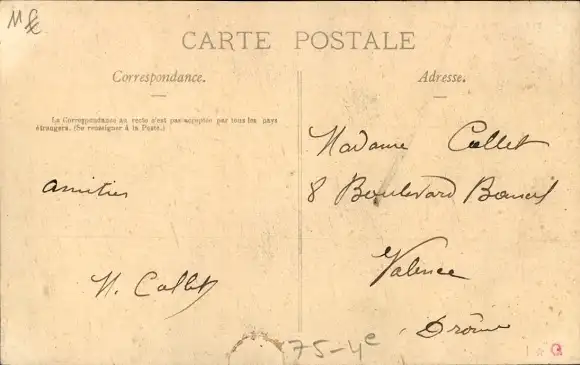 CARTE POSTALE
Correspondance.
La Correspondance au recto n'est pas acceptée par tous les pays
étrangers. (Se renseigner à la Poste.)
Amitiés
N. Collet
Adresse.
Madame Collet
8 Boulevard Bancel
Valence
Drôme
75-4e